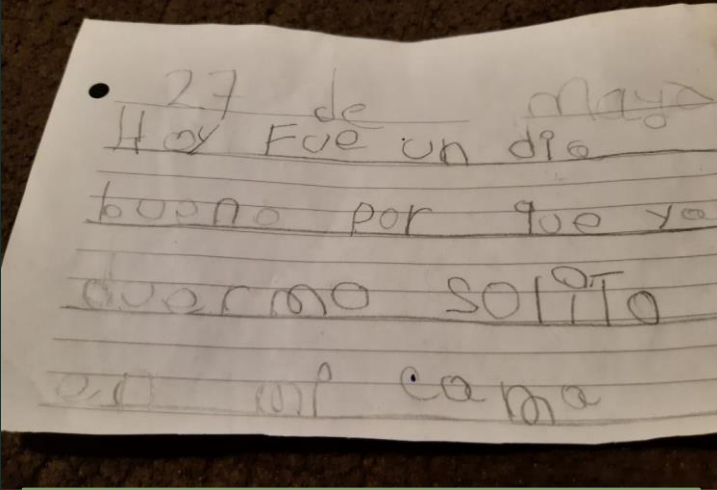 27 de Mayo
Hoy Fue un dia
bueno por que ya
duermo solito
en mi cama